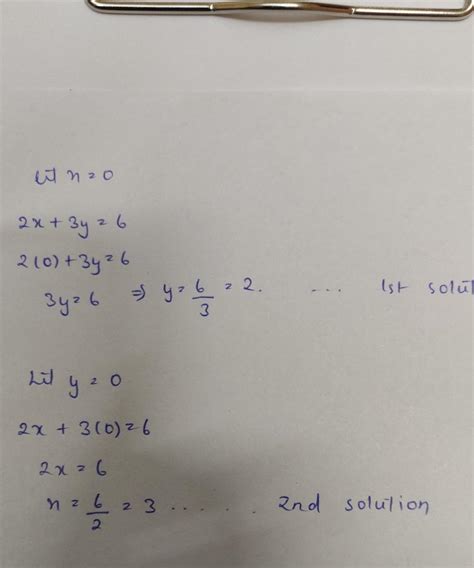 Let x = 0
2x + 3y = 6
2(0) + 3y = 6
3y = 6 ⇒ y = 6/3 = 2. ... 1st solut
Let y = 0
2x + 3(0) = 6
2x = 6
x = 6/2 = 3 ...... 2nd solution